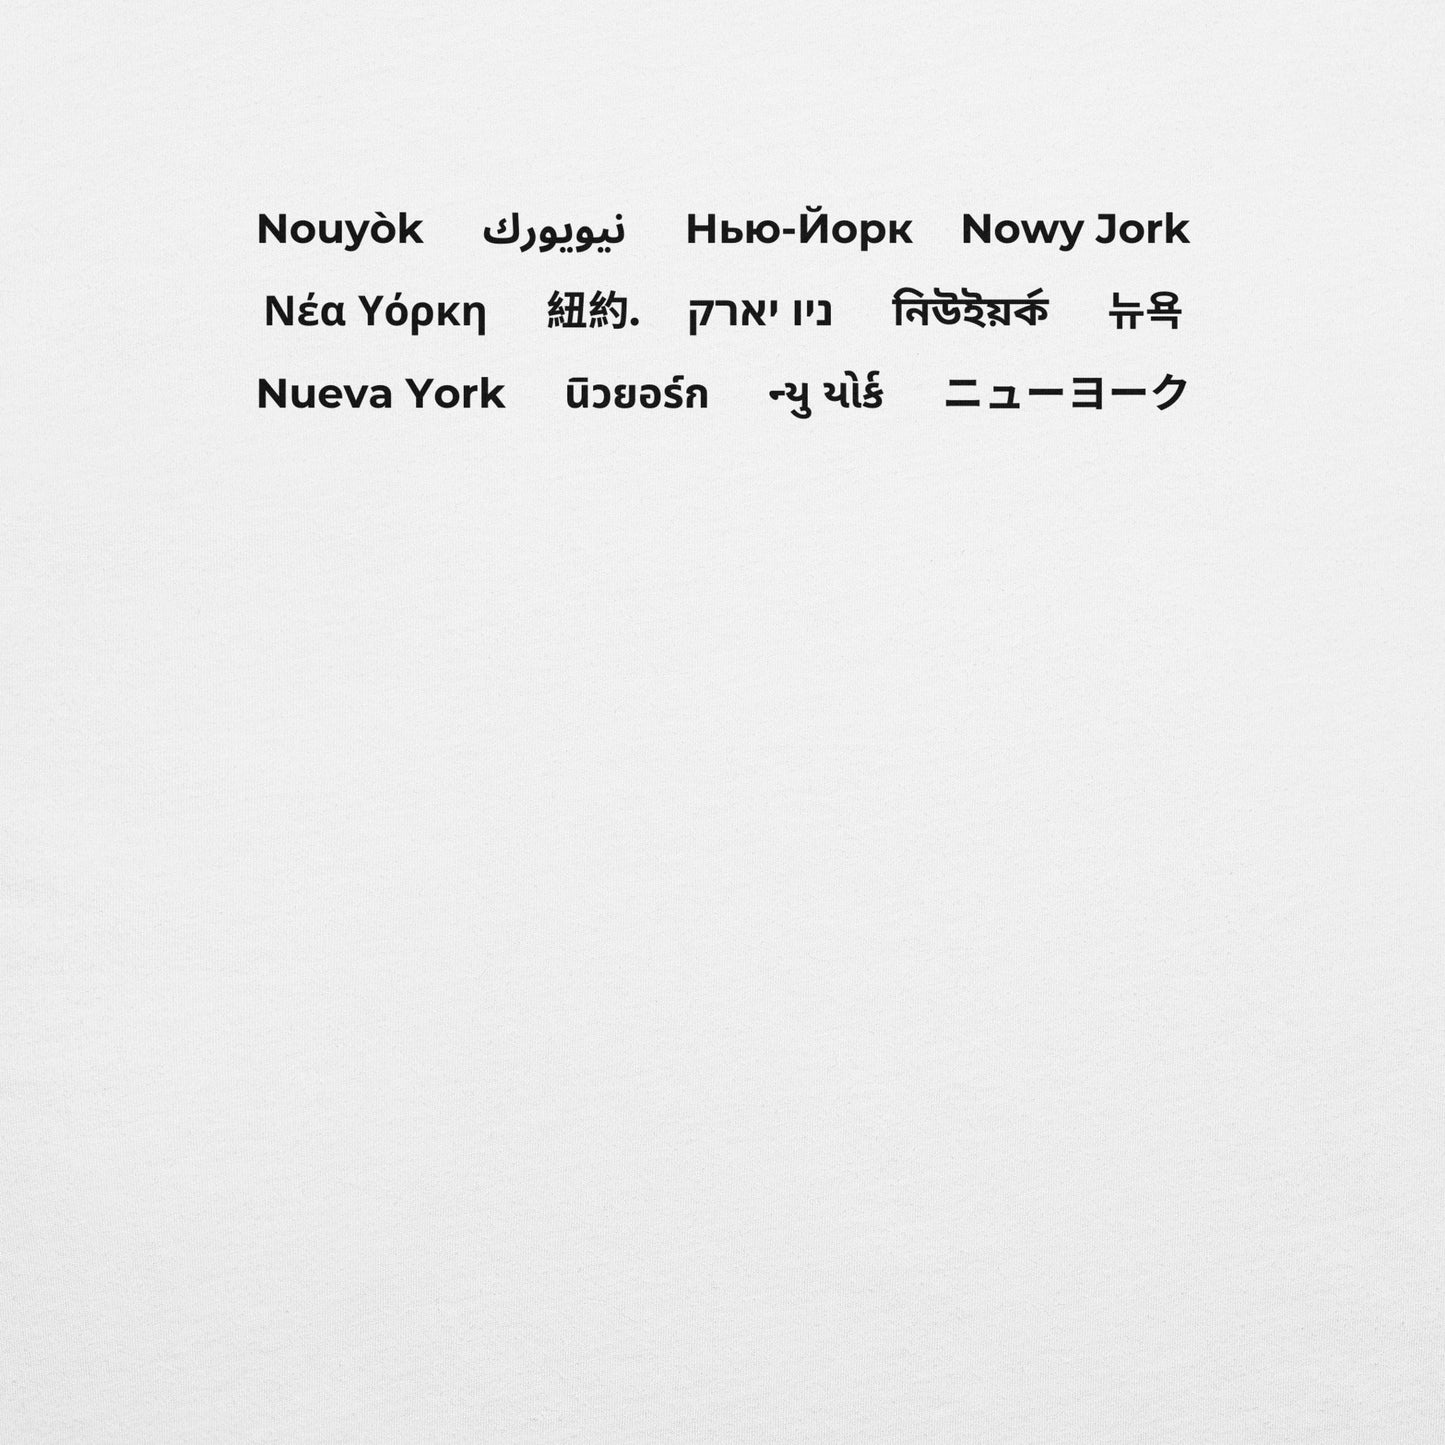 Nouyòk نيويورك Нью-Йорк Nowy Jork
Νέα Υόρκη 紐約. ניו יארק নিউইয়র্ক 뉴욕
Nueva York นิวยอร์ก ન્યુ યોર્ક ニューヨーク